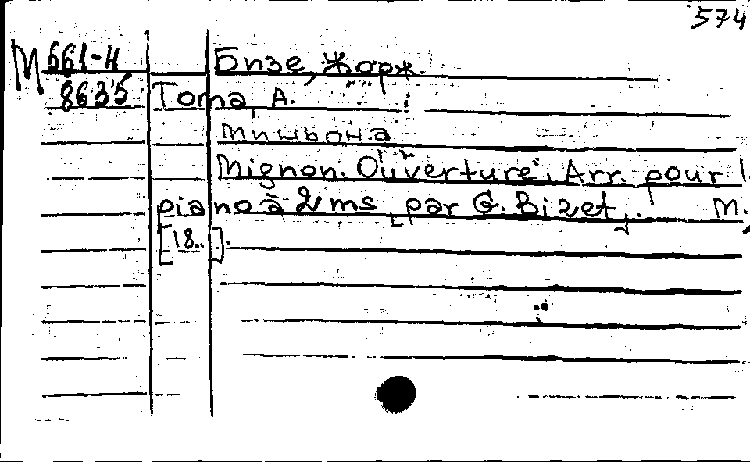 574
М 661-Н
8635
Бизе, Жорж.
Тома, А.
Миньона
Mignon. Ouverture. Arr. pour l.
piano à 2 ms [par G. Bizet]. М.,
[18..].